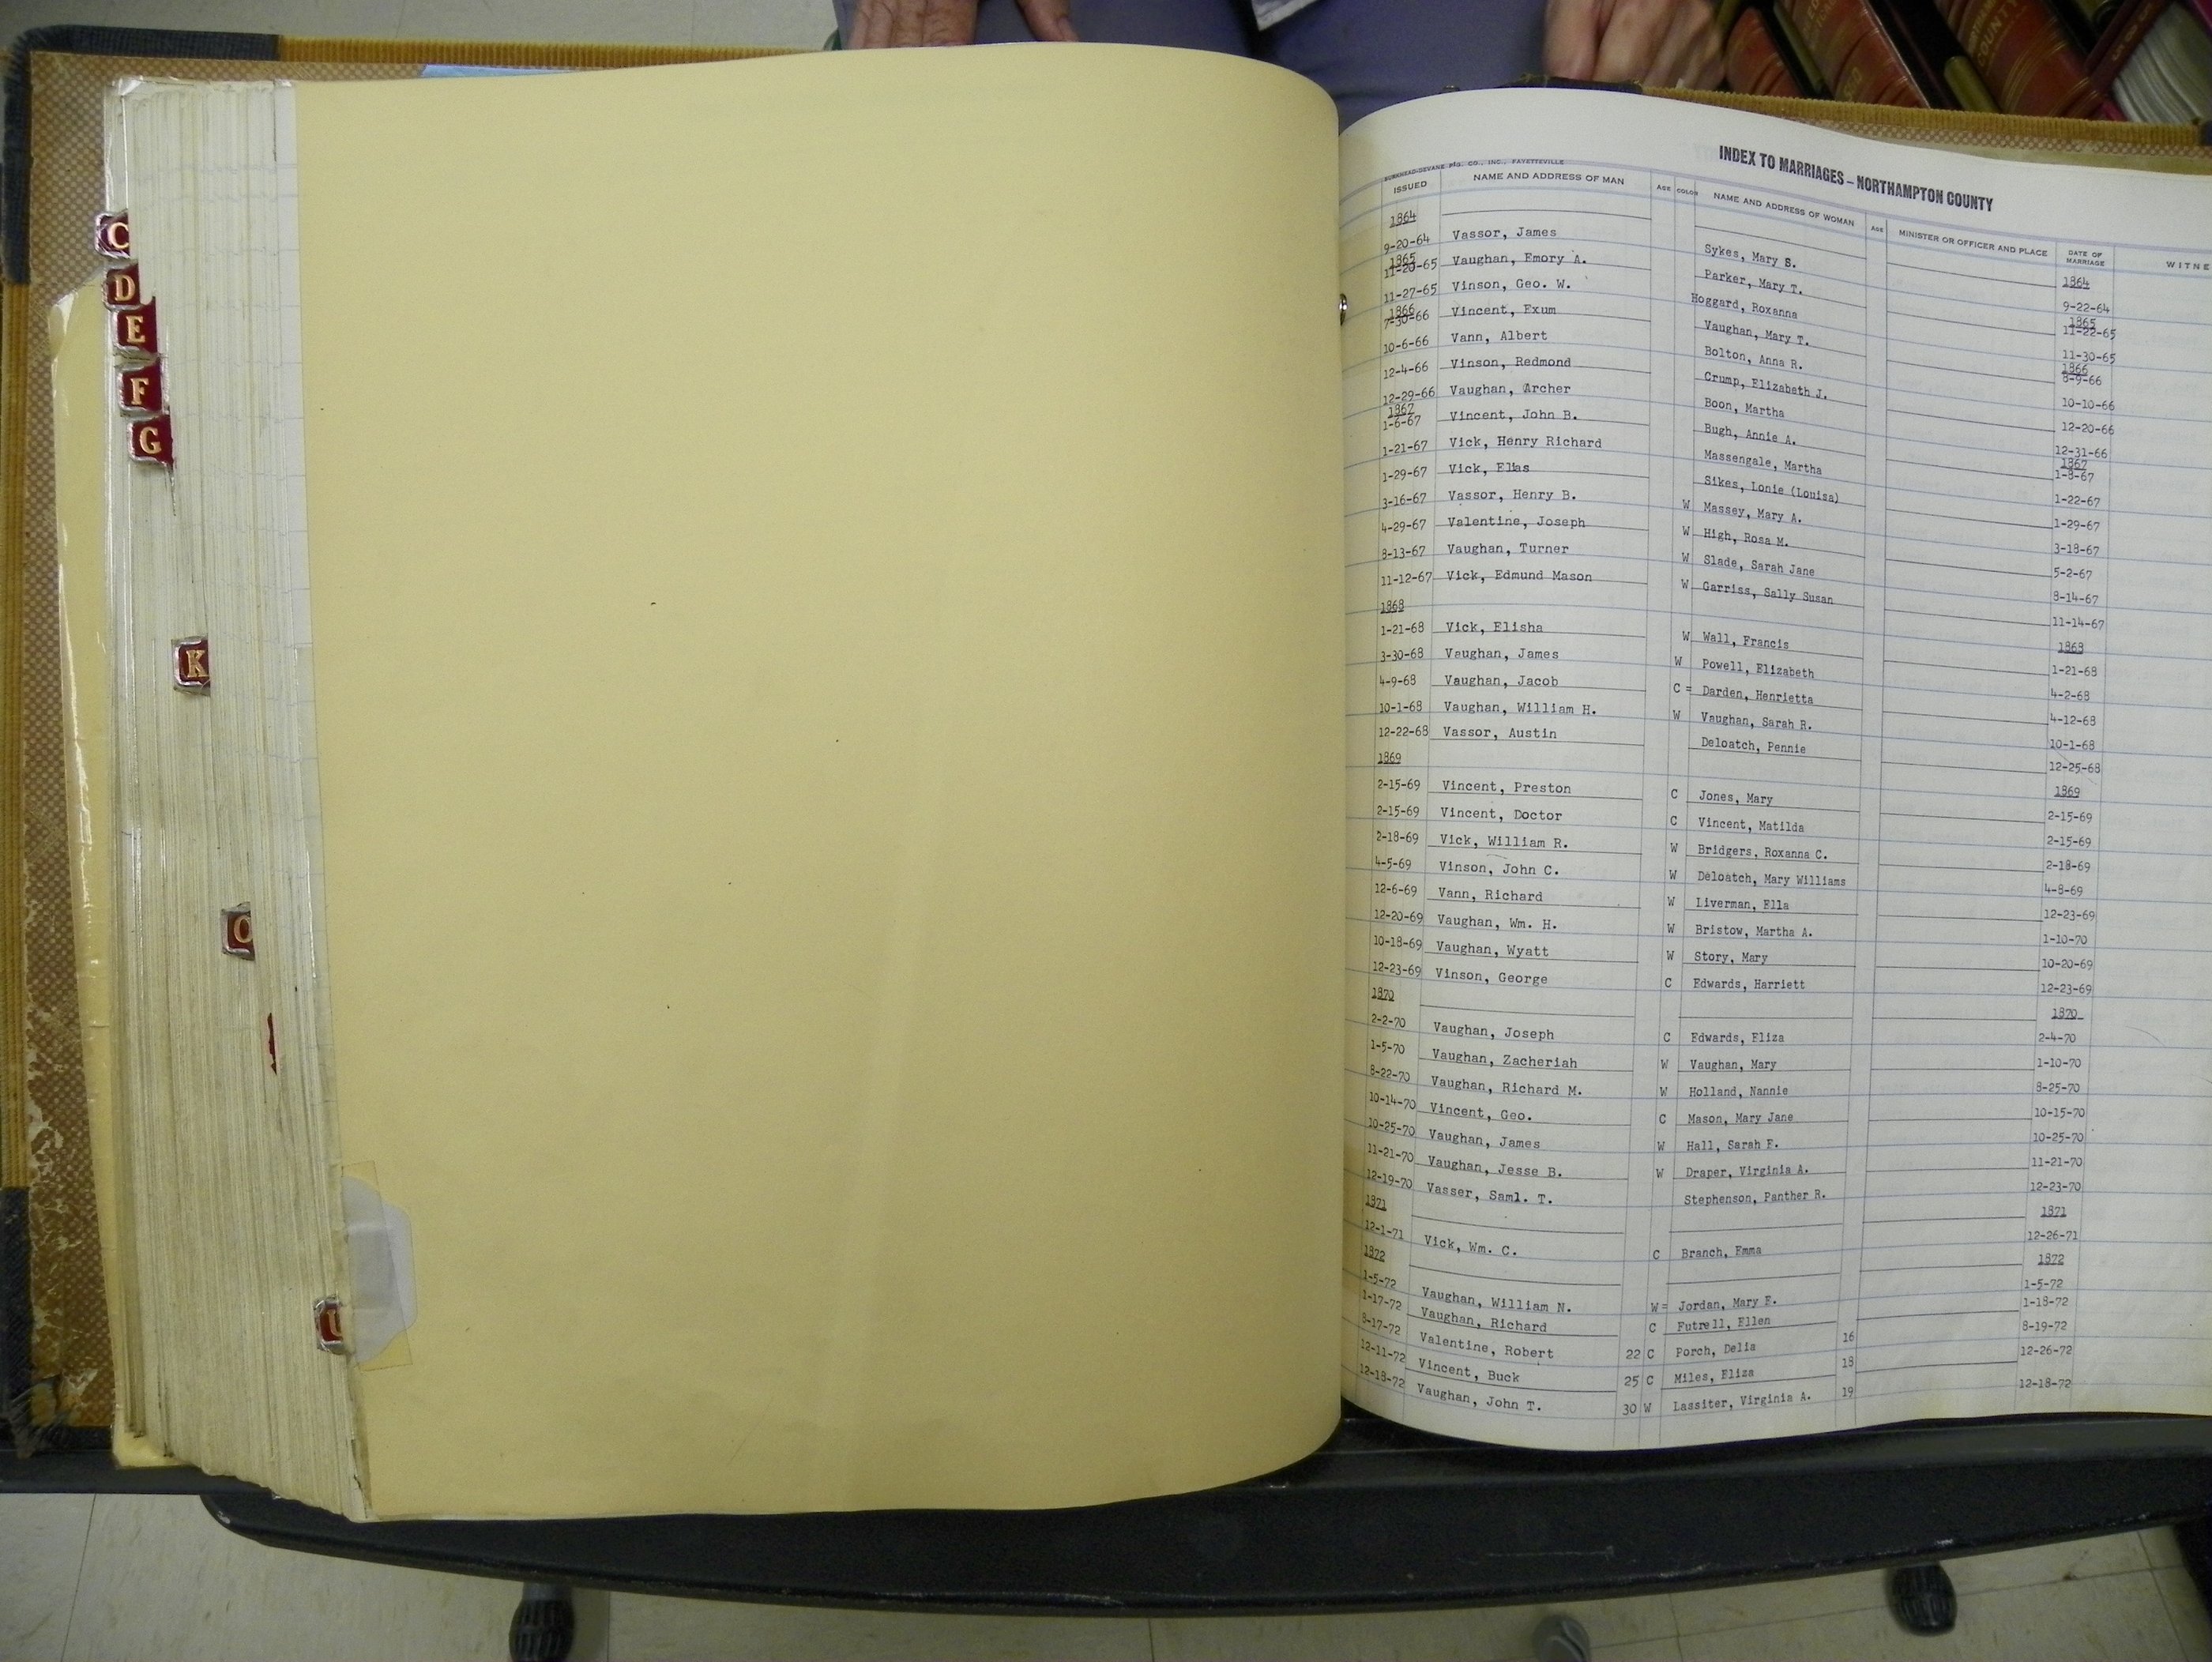 C
D
E
F
G
K
O
U
INDEX TO MARRIAGES – NORTHAMPTON COUNTY
BURKHEAD-DEVANE P'T'G. CO., INC., FAYETTEVILLE
ISSUED NAME AND ADDRESS OF MAN AGE COLOR NAME AND ADDRESS OF WOMAN AGE MINISTER OR OFFICER AND PLACE DATE OF MARRIAGE WITNE
1864 1864
9-20-64 Vassor, James Sykes, Mary S. 9-22-64
1865 1865
11-20-65 Vaughan, Emory A. Parker, Mary T. 11-22-65
11-27-65 Vinson, Geo. W. Hoggard, Roxanna 11-30-65
1866 1866
7-30-66 Vincent, Exum Vaughan, Mary T. 8-9-66
10-6-66 Vann, Albert Bolton, Anna R. 10-10-66
12-4-66 Vinson, Redmond Crump, Elizabeth J. 12-20-66
12-29-66 Vaughan, Archer Boon, Martha 12-31-66
1867 1867
1-6-67 Vincent, John B. Bugh, Annie A. 1-8-67
1-21-67 Vick, Henry Richard Massengale, Martha 1-22-67
1-29-67 Vick, Elias Sikes, Lonie (Louisa) 1-29-67
3-16-67 Vassor, Henry B. W Massey, Mary A. 3-18-67
4-29-67 Valentine, Joseph W High, Rosa M. 5-2-67
8-13-67 Vaughan, Turner W Slade, Sarah Jane 8-14-67
11-12-67 Vick, Edmund Mason W Garriss, Sally Susan 11-14-67
1868 1868
1-21-68 Vick, Elisha W Wall, Francis 1-21-68
3-30-68 Vaughan, James W Powell, Elizabeth 4-2-68
4-9-68 Vaughan, Jacob C = Darden, Henrietta 4-12-68
10-1-68 Vaughan, William H. W Vaughan, Sarah R. 10-1-68
12-22-68 Vassor, Austin Deloatch, Pennie 12-25-68
1869 1869
2-15-69 Vincent, Preston C Jones, Mary 2-15-69
2-15-69 Vincent, Doctor C Vincent, Matilda 2-15-69
2-18-69 Vick, William R. W Bridgers, Roxanna C. 2-18-69
4-5-69 Vinson, John C. W Deloatch, Mary Williams 4-8-69
12-6-69 Vann, Richard W Liverman, Ella 12-23-69
12-20-69 Vaughan, Wm. H. W Bristow, Martha A. 1-10-70
10-18-69 Vaughan, Wyatt W Story, Mary 10-20-69
12-23-69 Vinson, George C Edwards, Harriett 12-23-69
1870 1870
2-2-70 Vaughan, Joseph C Edwards, Eliza 2-4-70
1-5-70 Vaughan, Zacheriah W Vaughan, Mary 1-10-70
8-22-70 Vaughan, Richard M. W Holland, Nannie 8-25-70
10-14-70 Vincent, Geo. C Mason, Mary Jane 10-15-70
10-25-70 Vaughan, James W Hall, Sarah E. 10-25-70
11-21-70 Vaughan, Jesse B. W Draper, Virginia A. 11-21-70
12-19-70 Vasser, Saml. T. Stephenson, Panther R. 12-23-70
1871 1871
12-1-71 Vick, Wm. C. C Branch, Emma 12-26-71
1872 1872
1-5-72 Vaughan, William N. W = Jordan, Mary E. 1-5-72
1-17-72 Vaughan, Richard C Futrell, Ellen 1-18-72
8-17-72 Valentine, Robert 22 C Porch, Delia 16 8-19-72
12-11-72 Vincent, Buck 25 C Miles, Eliza 18 12-26-72
12-18-72 Vaughan, John T. 30 W Lassiter, Virginia A. 19 12-18-72